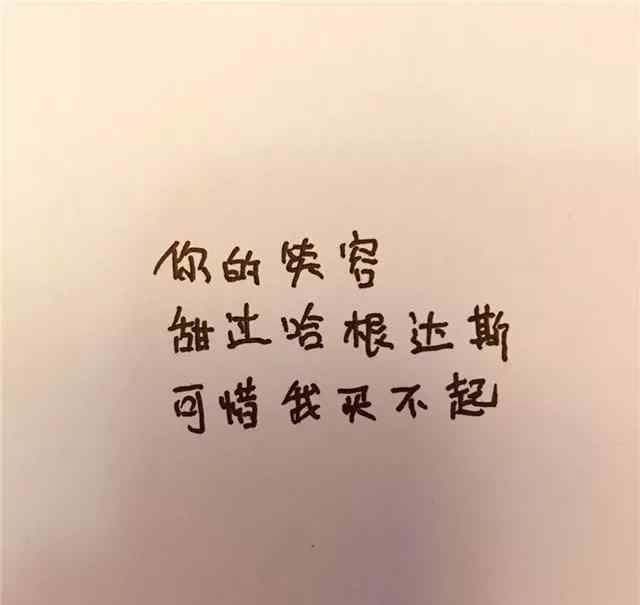 你的笑容
甜过哈根达斯
可惜我买不起